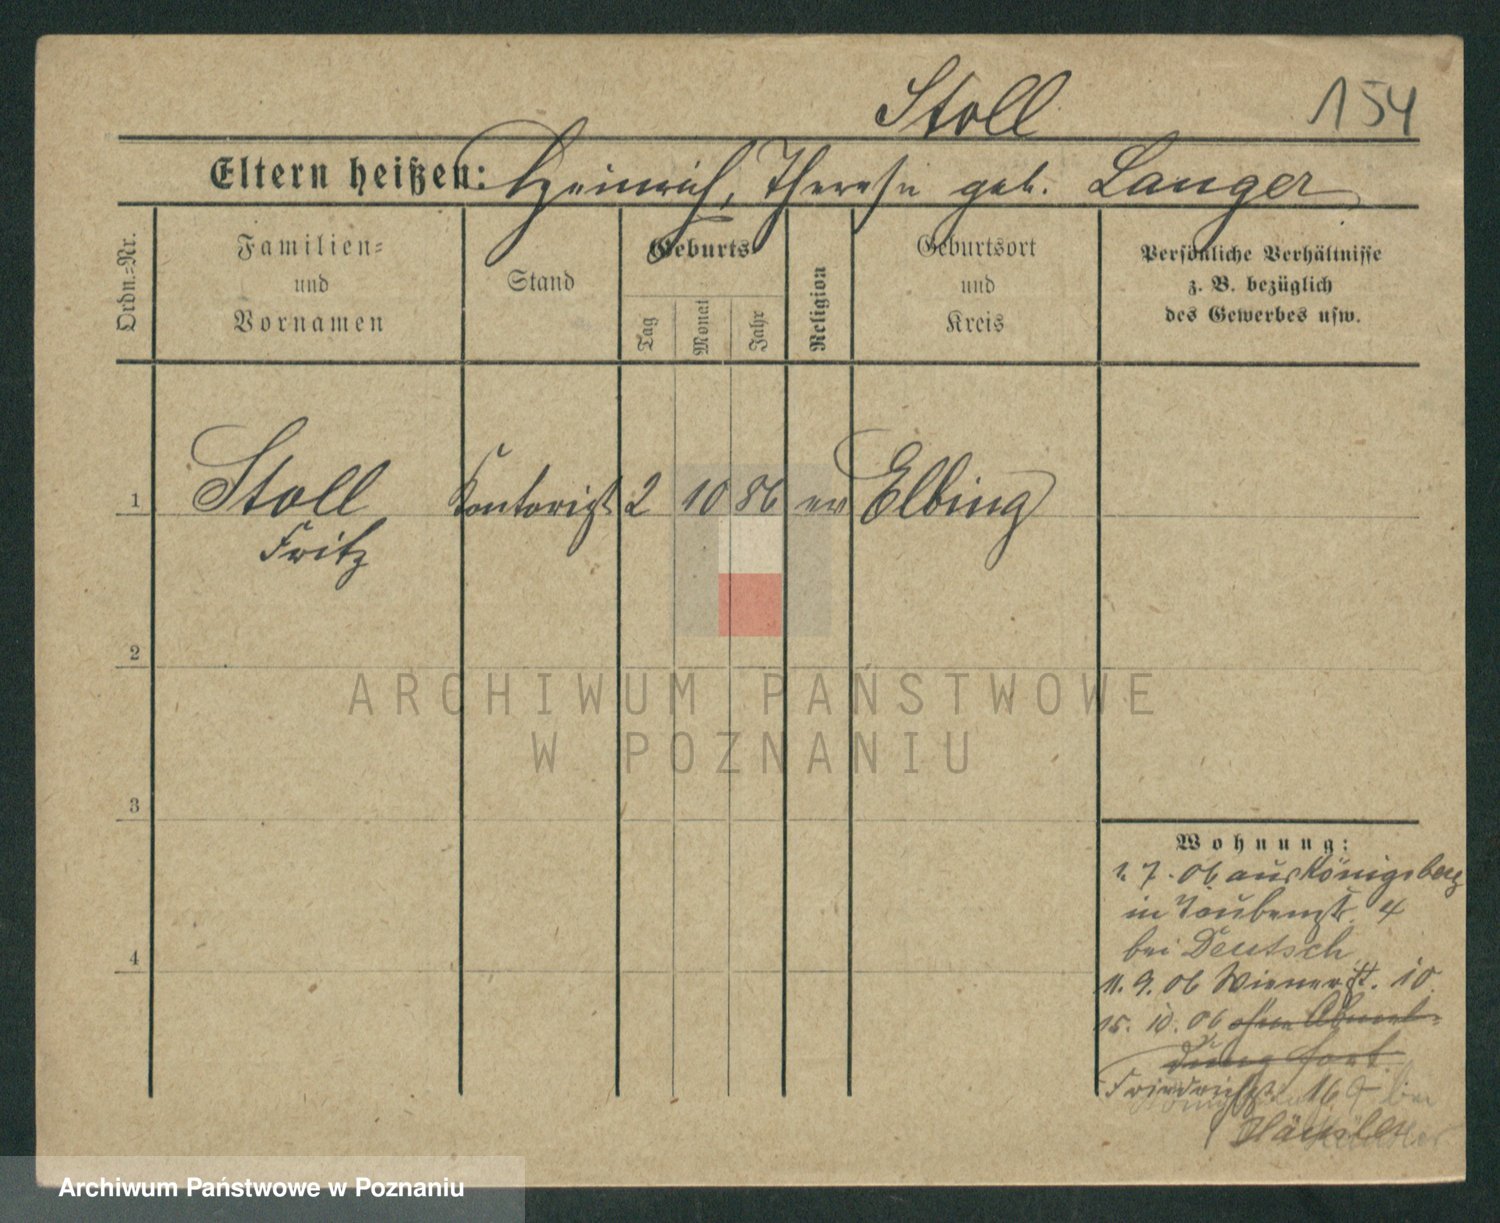 Stoll
154
Eltern heißen: Heinrich, Therese geb. Langer
Ordn.=Nr.
Familien=
und
Vornamen
Stand
Geburts
Tag
Monat
Jahr
Religion
Geburtsort
und
Kreis
Persönliche Verhältnisse
z. B. bezüglich
des Gewerbes usw.
1 Stoll Kontorist 2 10 86 ev Elbing
Fritz
2
3
4
ARCHIWUM PAŃSTWOWE
W POZNANIU
Wohnung:
1. 7. 06 aus Königsberg
in Taubenstr. 4
bei Deutsch
11. 9. 06 Wienerstr. 10.
15. 10. 06 ohne Abmel=
dung fort.
Friedrichstr. 16 bei
Archiwum Państwowe w Poznaniu